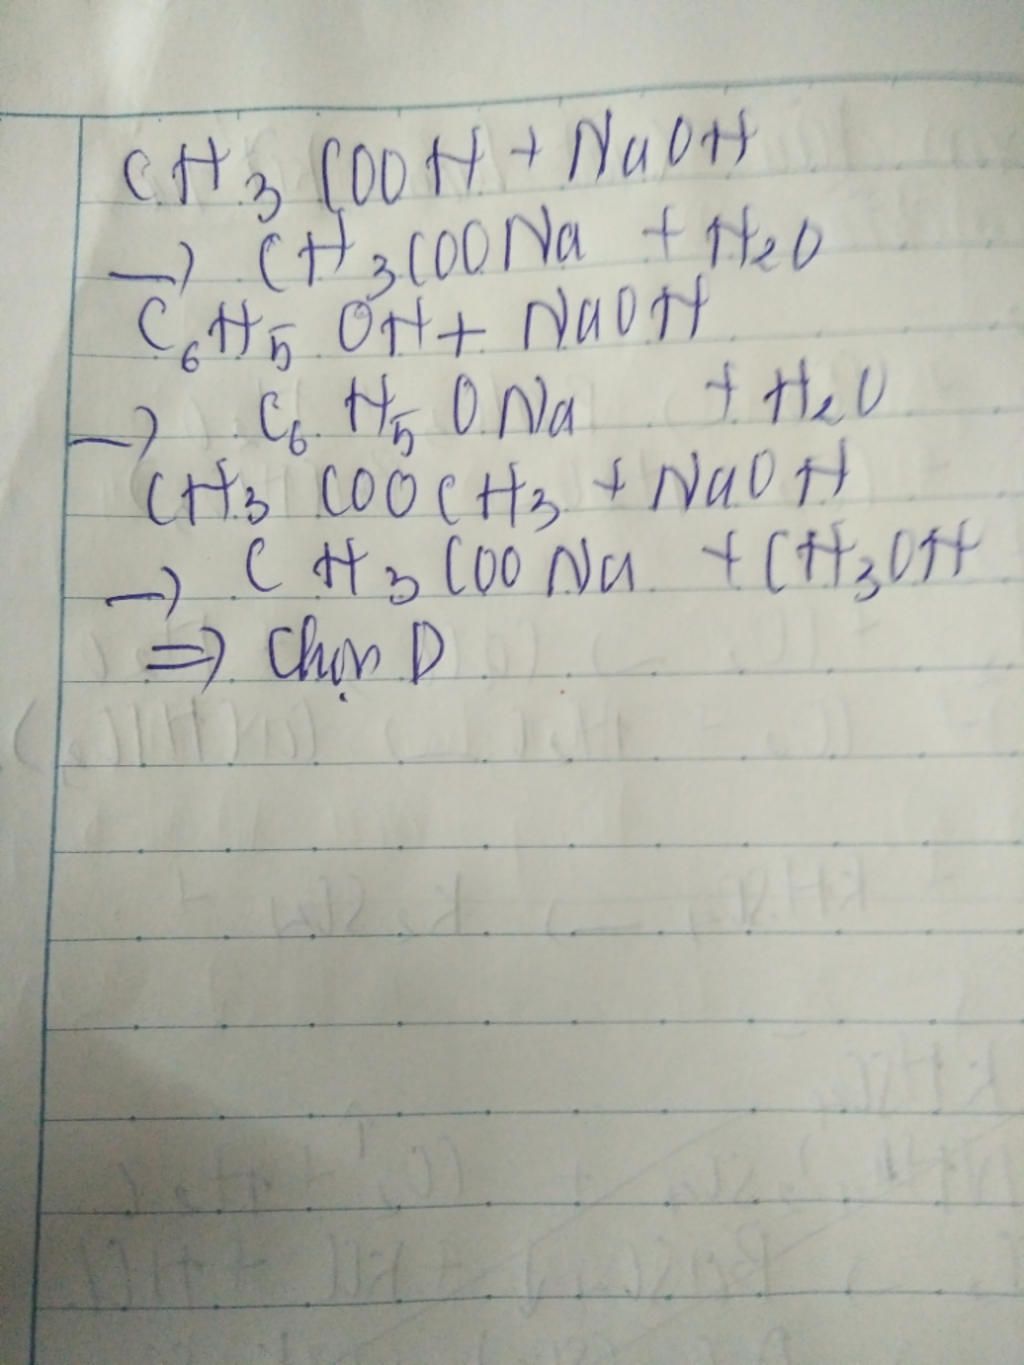 CH3 COOH + NaOH
→ CH3COONa + H2O
C6H5 OH + NaOH
→ C6 H5 ONa + H2O
CH3 COOCH3 + NaOH
→ CH3 COONa + CH3OH
⇒ Chọn D